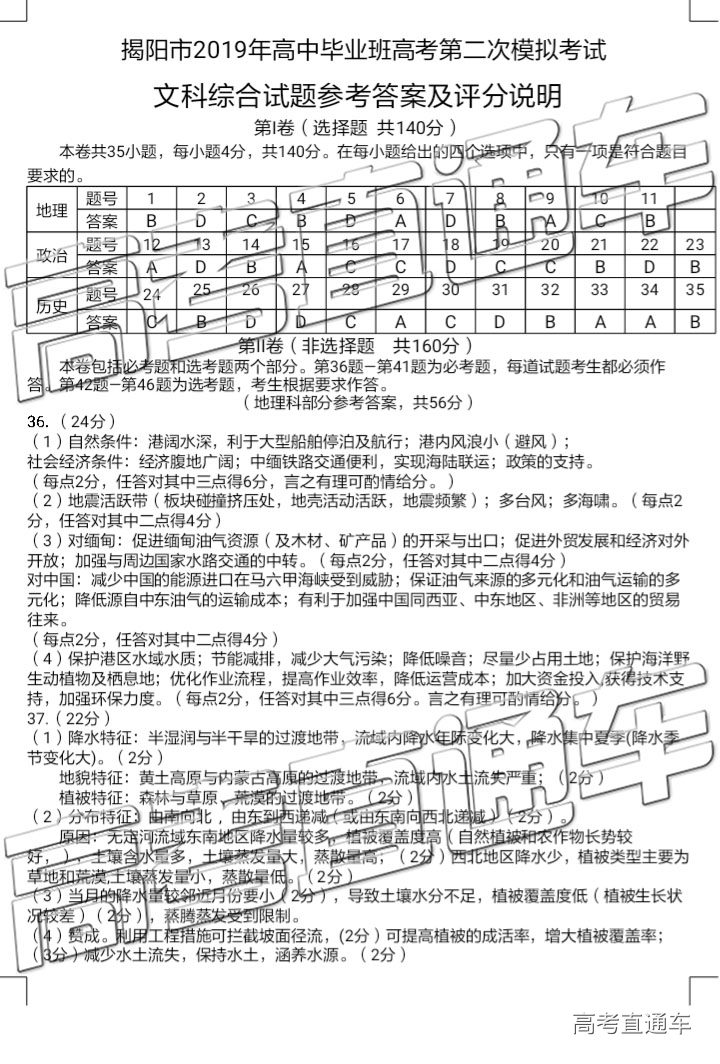 揭阳市2019年高中毕业班高考第二次模拟考试
文科综合试题参考答案及评分说明
第I卷（选择题 共140分）
本卷共35小题，每小题4分，共140分。在每小题给出的四个选项中，只有一项是符合题目
要求的。
地理 题号 1 2 3 4 5 6 7 8 9 10 11
答案 B D C B D A D B A C B
政治 题号 12 13 14 15 16 17 18 19 20 21 22 23
答案 A D B A C C D C C B D B
历史 题号 24 25 26 27 28 29 30 31 32 33 34 35
答案 C B D D C A C D B A A B
第II卷（非选择题 共160分）
本卷包括必考题和选考题两个部分。第36题—第41题为必考题，每道试题考生都必须作
答。第42题—第46题为选考题，考生根据要求作答。
（地理科部分参考答案，共56分）
36.（24分）
（1）自然条件：港阔水深，利于大型船舶停泊及航行；港内风浪小（避风）；
社会经济条件：经济腹地广阔；中缅铁路交通便利，实现海陆联运；政策的支持。
（每点2分，任答对其中三点得6分，言之有理可酌情给分。）
（2）地震活跃带（板块碰撞挤压处，地壳活动活跃，地震频繁）；多台风；多海啸。（每点2
分，任答对其中二点得4分）
（3）对缅甸：促进缅甸油气资源（及木材、矿产品）的开采与出口；促进外贸发展和经济对外
开放；加强与周边国家水路交通的中转。（每点2分，任答对其中二点得4分）
对中国：减少中国的能源进口在马六甲海峡受到威胁；保证油气来源的多元化和油气运输的多
元化；降低源自中东油气的运输成本；有利于加强中国同西亚、中东地区、非洲等地区的贸易
往来。
（每点2分，任答对其中二点得4分）
（4）保护港区水域水质；节能减排，减少大气污染；降低噪音；尽量少占用土地；保护海洋野
生动植物及栖息地；优化作业流程，提高作业效率，降低运营成本；加大资金投入,获得技术支
持，加强环保力度。（每点2分，任答对其中三点得6分。言之有理可酌情给分。）
37.（22分）
（1）降水特征：半湿润与半干旱的过渡地带，流域内降水年际变化大，降水集中夏季(降水季
节变化大)。（2分）
地貌特征：黄土高原与内蒙古高原的过渡地带，流域内水土流失严重；（2分）
植被特征：森林与草原、荒漠的过渡地带。（2分）
（2）分布特征：由南向北 ，由东到西递减（或由东南向西北递减）（2分）。
原因：无定河流域东南地区降水量较多，植被覆盖度高（自然植被和农作物长势较
好，），土壤含水量多，土壤蒸发量大，蒸散量高；（2分）西北地区降水少，植被类型主要为
草地和荒漠,土壤蒸发量小，蒸散量低。（2分）
（3）当月的降水量较邻近月份要小（2分），导致土壤水分不足，植被覆盖度低（植被生长状
况较差）（2分），蒸腾蒸发受到限制。
（4）赞成。利用工程措施可拦截坡面径流，(2分）可提高植被的成活率，增大植被覆盖率；
（3分）减少水土流失，保持水土，涵养水源。（2分）
高考直通车
高考直通车
高考直通车